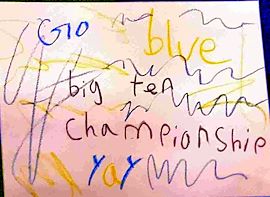 Go blue
big ten
championship
yay